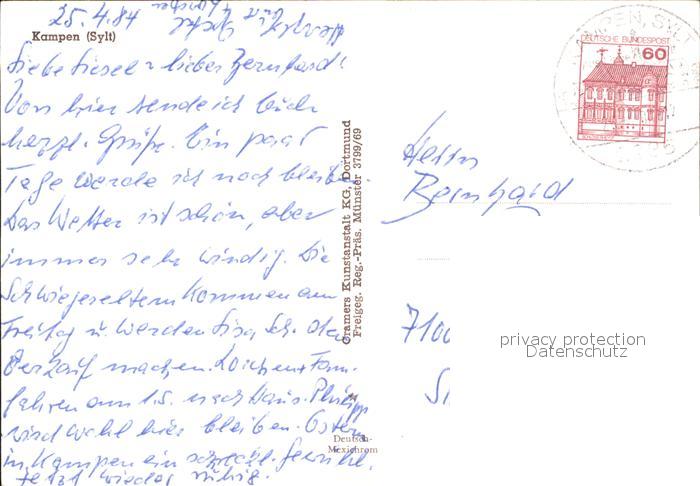 25.4.84
Kampen (Sylt)
Liebe Liesel u. lieber Bernhard!
Von hier sende ich Euch
herzl. Grüße. Ein paar
Tage werde ich noch bleiben.
Das Wetter ist schön, aber
immer sehr windig. Die
Schwiegereltern kommen am
Freitag u. werden
machen.
fahren am 1.5. nach Haus. Philipp
wird wohl hier bleiben. Ostern
in Kampen ein schreckl. Gewühl.
Jetzt wieder ruhig.
Cramers Kunstanstalt KG, Dortmund
Freigeg. Reg.-Präs. Münster 3799/69
Deutsch-
Mexichrom
KAMPEN, SYLT
DEUTSCHE BUNDESPOST
60
Herrn
Bernhard
710
privacy protection
Datenschutz